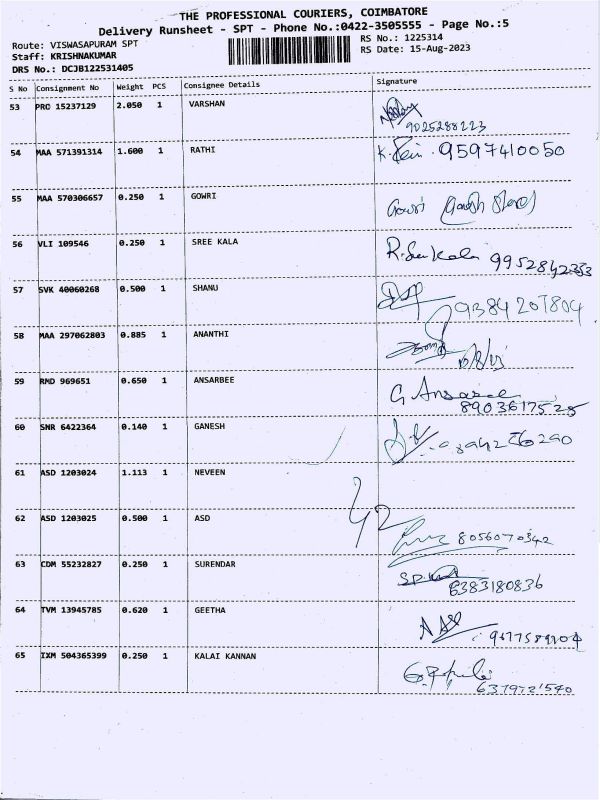 THE PROFESSIONAL COURIERS, COIMBATORE
Delivery Runsheet - SPT - Phone No.:0422-3505555 - Page No.:5
Route: VISWASAPURAM SPT
Staff: KRISHNAKUMAR
DRS No.: DCJB122531405
RS No.: 1225314
RS Date: 15-Aug-2023
S No Consignment No Weight PCS Consignee Details Signature
53 PRO 15237129 2.050 1 VARSHAN
9025288223
54 MAA 571391314 1.600 1 RATHI 9597410050
55 MAA 570306657 0.250 1 GOWRI Gowri
56 VLI 109546 0.250 1 SREE KALA 9952842353
57 SVK 40060268 0.500 1 SHANU 9384207804
58 MAA 297062803 0.885 1 ANANTHI
59 RMD 969651 0.650 1 ANSARBEE G Ansaree
8903617525
60 SNR 6422364 0.140 1 GANESH
61 ASD 1203024 1.113 1 NEVEEN
62 ASD 1203025 0.500 1 ASD 42
8056070342
63 CDM 55232827 0.250 1 SURENDAR
6383180836
64 TVM 13945785 0.620 1 GEETHA
65 IXM 504365399 0.250 1 KALAI KANNAN